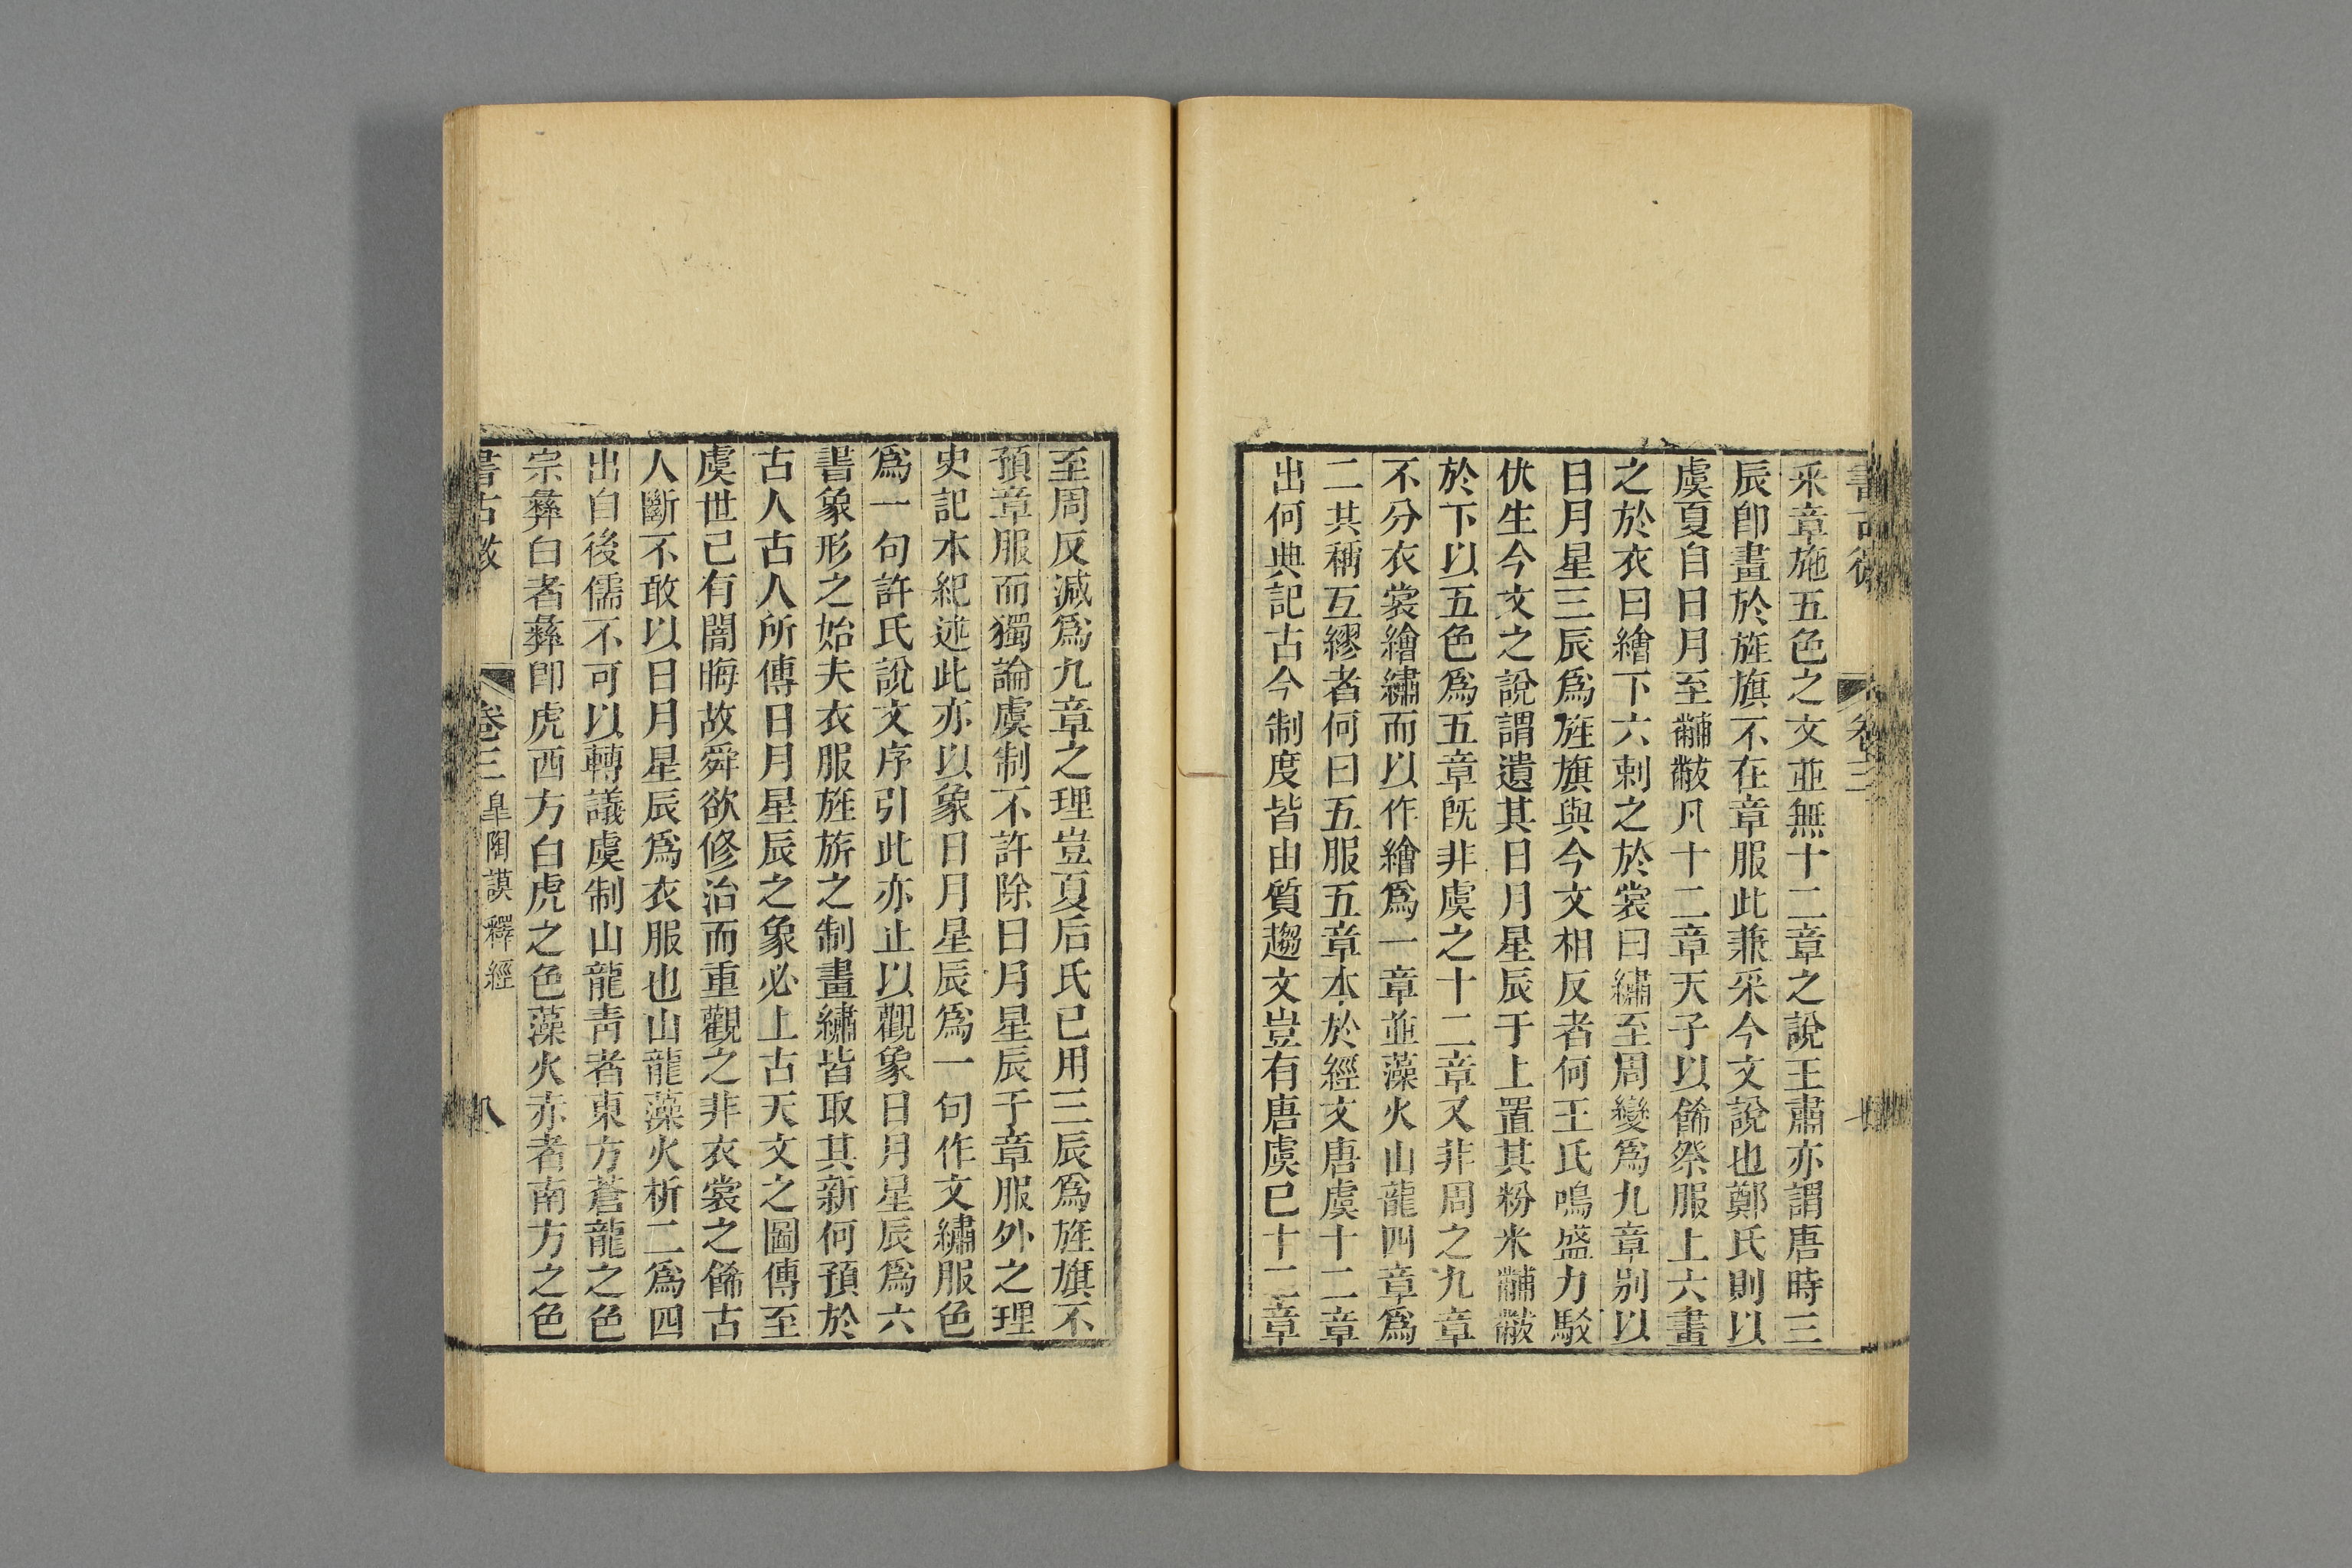 書古微 卷三 七
采章施五色之文並無十二章之說王肅亦謂唐時三
辰卽畫於旌旗不在章服此兼采今文說也鄭氏則以
虞夏自日月至黼黻凡十二章天子以飾祭服上六畫
之於衣曰繪下六刺之於裳曰繡至周變爲九章別以
日月星三辰爲旌旗與今文相反者何王氏鳴盛力駁
伏生今文之說謂遺其日月星辰于上置其粉米黼黻
於下以五色爲五章旣非虞之十二章又非周之九章
不分衣裳繪繡而以作繪爲一章並藻火山龍四章爲
二其稱互繆者何曰五服五章本於經文唐虞十二章
出何典記古今制度皆由質趨文豈有唐虞已十二章
至周反減爲九章之理豈夏后氏已用三辰爲旌旗不
預章服而獨論虞制不許除日月星辰于章服外之理
史記本紀述此亦以象日月星辰爲一句作文繡服色
爲一句許氏說文序引此亦止以觀象日月星辰爲六
書象形之始夫衣服旌旂之制畫繡皆取其新何預於
古人古人所傳日月星辰之象必上古天文之圖傳至
虞世已有闇晦故舜欲修治而重觀之非衣裳之飾古
人斷不敢以日月星辰爲衣服也山龍藻火析二爲四
出自後儒不可以轉議虞制山龍靑者東方蒼龍之色
宗彝白者彝卽虎西方白虎之色藻火赤者南方之色
書古微 卷三 皐陶謨釋經 八